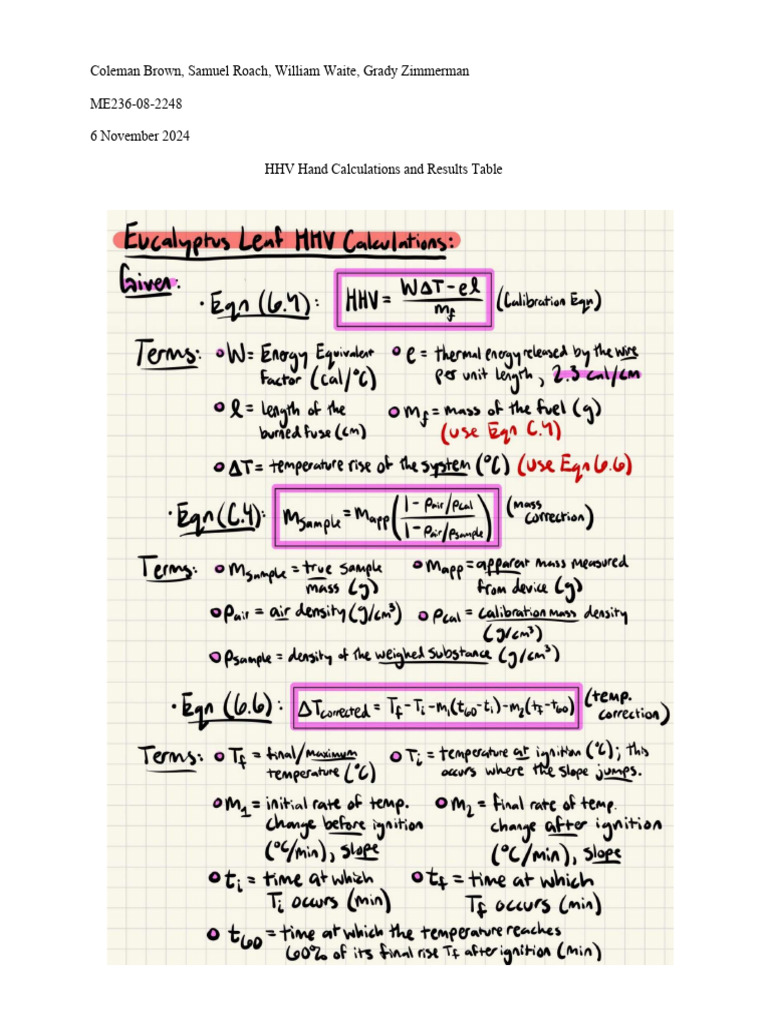 Coleman Brown, Samuel Roach, William Waite, Grady Zimmerman
ME236-08-2248
6 November 2024
HHV Hand Calculations and Results Table
Eucalyptus Leaf HHV Calculations:
Given:
• Eqn (6.4): HHV = (WΔT - el)/m_f (Calibration Eqn)
Terms: • W = Energy Equivalent Factor (cal/°C)
• e = thermal energy released by the wire per unit length, 2.3 cal/cm
• l = length of the burned fuse (cm)
• m_f = mass of the fuel (g)
(use Eqn C.4)
• ΔT = temperature rise of the system (°C) (use Eqn 6.6)
• Eqn (C.4): m_sample = m_app((1 - ρair/ρcal)/(1 - ρair/ρsample)) (mass correction)
Terms: • m_sample = true sample mass (g)
• m_app = apparent mass measured from device (g)
• ρair = air density (g/cm³)
• ρcal = calibration mass density (g/cm³)
• ρsample = density of the weighed substance (g/cm³)
• Eqn (6.6): ΔT_corrected = T_f - T_i - m_1(t_60 - t_i) - m_2(t_f - t_60) (temp. correction)
Terms: • T_f = final/maximum temperature (°C)
• T_i = temperature at ignition (°C); this occurs where the slope jumps.
• m_1 = initial rate of temp. change before ignition (°C/min), slope
• m_2 = final rate of temp. change after ignition (°C/min), slope
• t_i = time at which T_i occurs (min)
• t_f = time at which T_f occurs (min)
• t_60 = time at which the temperature reaches 60% of its final rise T_f after ignition (min)